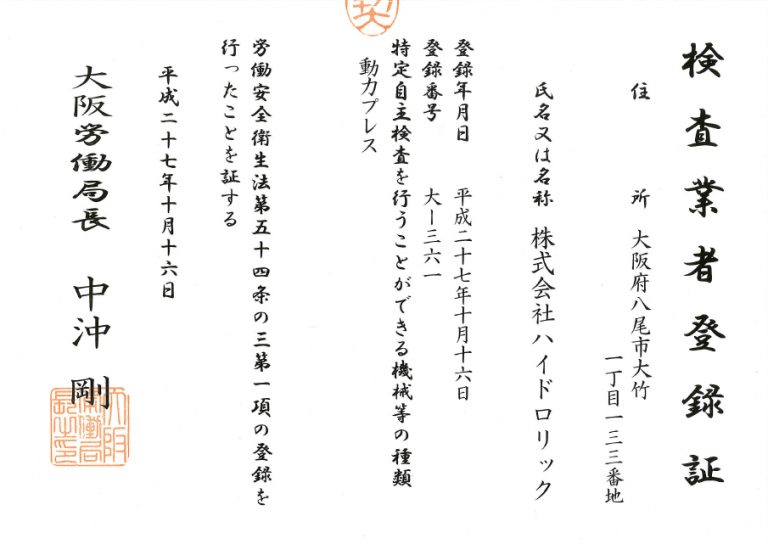 検査業者登録証
住所 大阪府八尾市大竹
一丁目一三三番地
氏名又は名称 株式会社ハイドロリック
登録年月日 平成二十七年十月十六日
登録番号 大ー三六一
特定自主検査を行うことができる機械等の種類
動力プレス
労働安全衛生法第五十四条の三第一項の登録を
行ったことを証する
平成二十七年十月十六日
大阪労働局長 中沖 剛
契
大阪
労働局
長之印